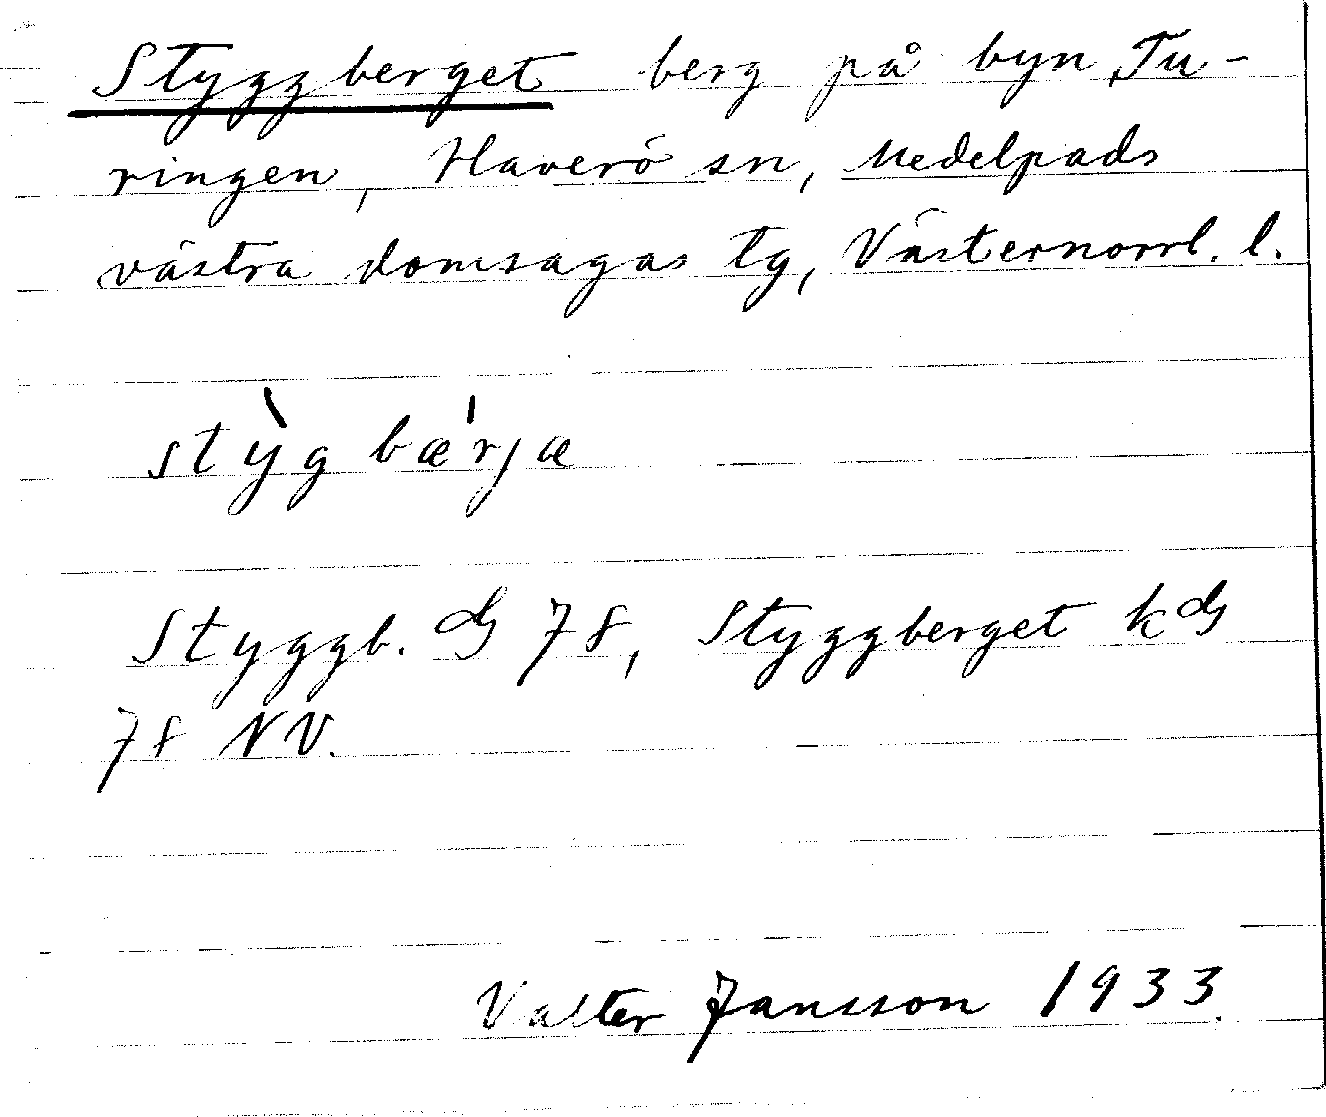 Styggberget berg på byn Tu-
ringen, Haverö sn, Medelpads
västra domsagas tg, Västernorrl. l.
stỳg bæ'rjæ
Styggb. GS 78, Styggberget k GS
78 NV.
Valter Jansson 1933.